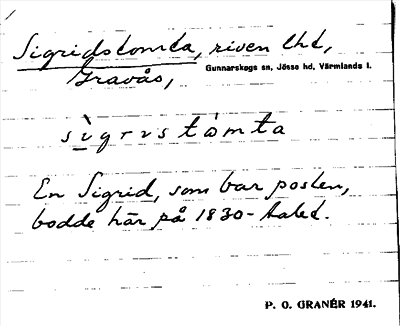 Sigridstomta, riven lht,
Gravås,
Gunnarskogs sn, Jösse hd, Värmlands l.
sìgrɩstòmta
En Sigrid, som bar posten,
bodde här på 1830-talet.
P. O. GRANÉR 1941.